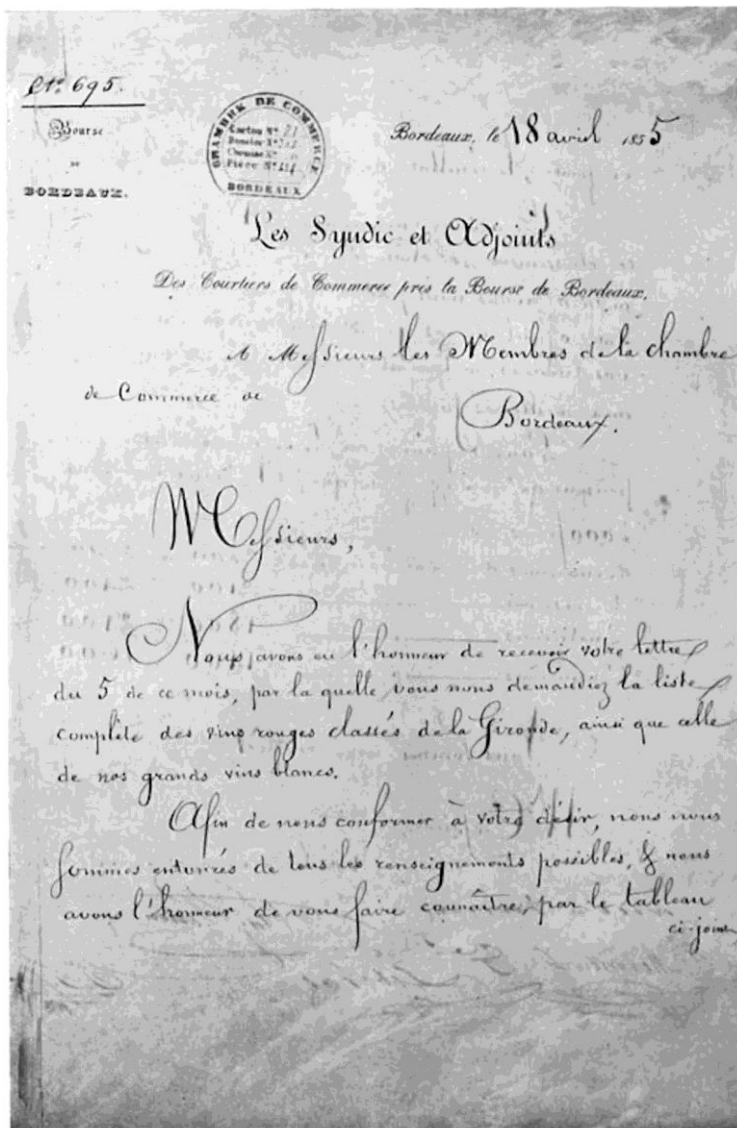 N° 695.
Bourse
DE
BORDEAUX.
CHAMBRE DE COMMERCE
Carton N° 21
Dossier N°
Chemise N°
Pièce N°
BORDEAUX
Bordeaux, le 18 avril 1855
Les Syndic et Adjoints
Des Courtiers de Commerce près la Bourse de Bordeaux,
A Messieurs les Membres de la chambre
de Commerce de
Bordeaux.
Messieurs,
Nous avons eu l'honneur de recevoir votre lettre
du 5 de ce mois, par la quelle vous nous demandiez la liste
complète des vins rouges classés de la Gironde, ainsi que celle
de nos grands vins blancs.
Afin de nous conformer à votre désir, nous nous
sommes entourés de tous les renseignements possibles, & nous
avons l'honneur de vous faire connaître, par le tableau
ci-joint